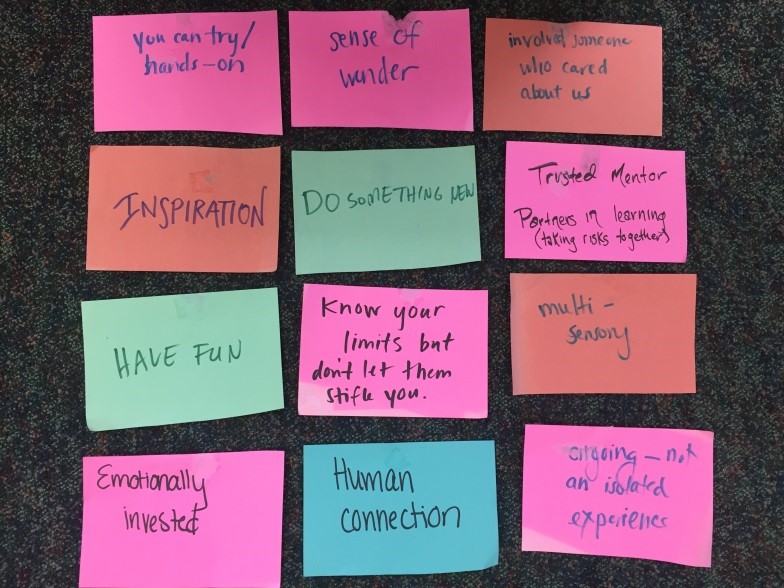 you can try/
hands-on
sense of
wunder
involved someone
who cared
about us
INSPIRATION
DO SOMETHING NEW
Trusted Mentor
Partners in learning
(taking risks together)
HAVE FUN
Know your
limits but
don't let them
stifle you.
multi-
sensory
Emotionally
invested
Human
connection
ongoing - not
an isolated
experience